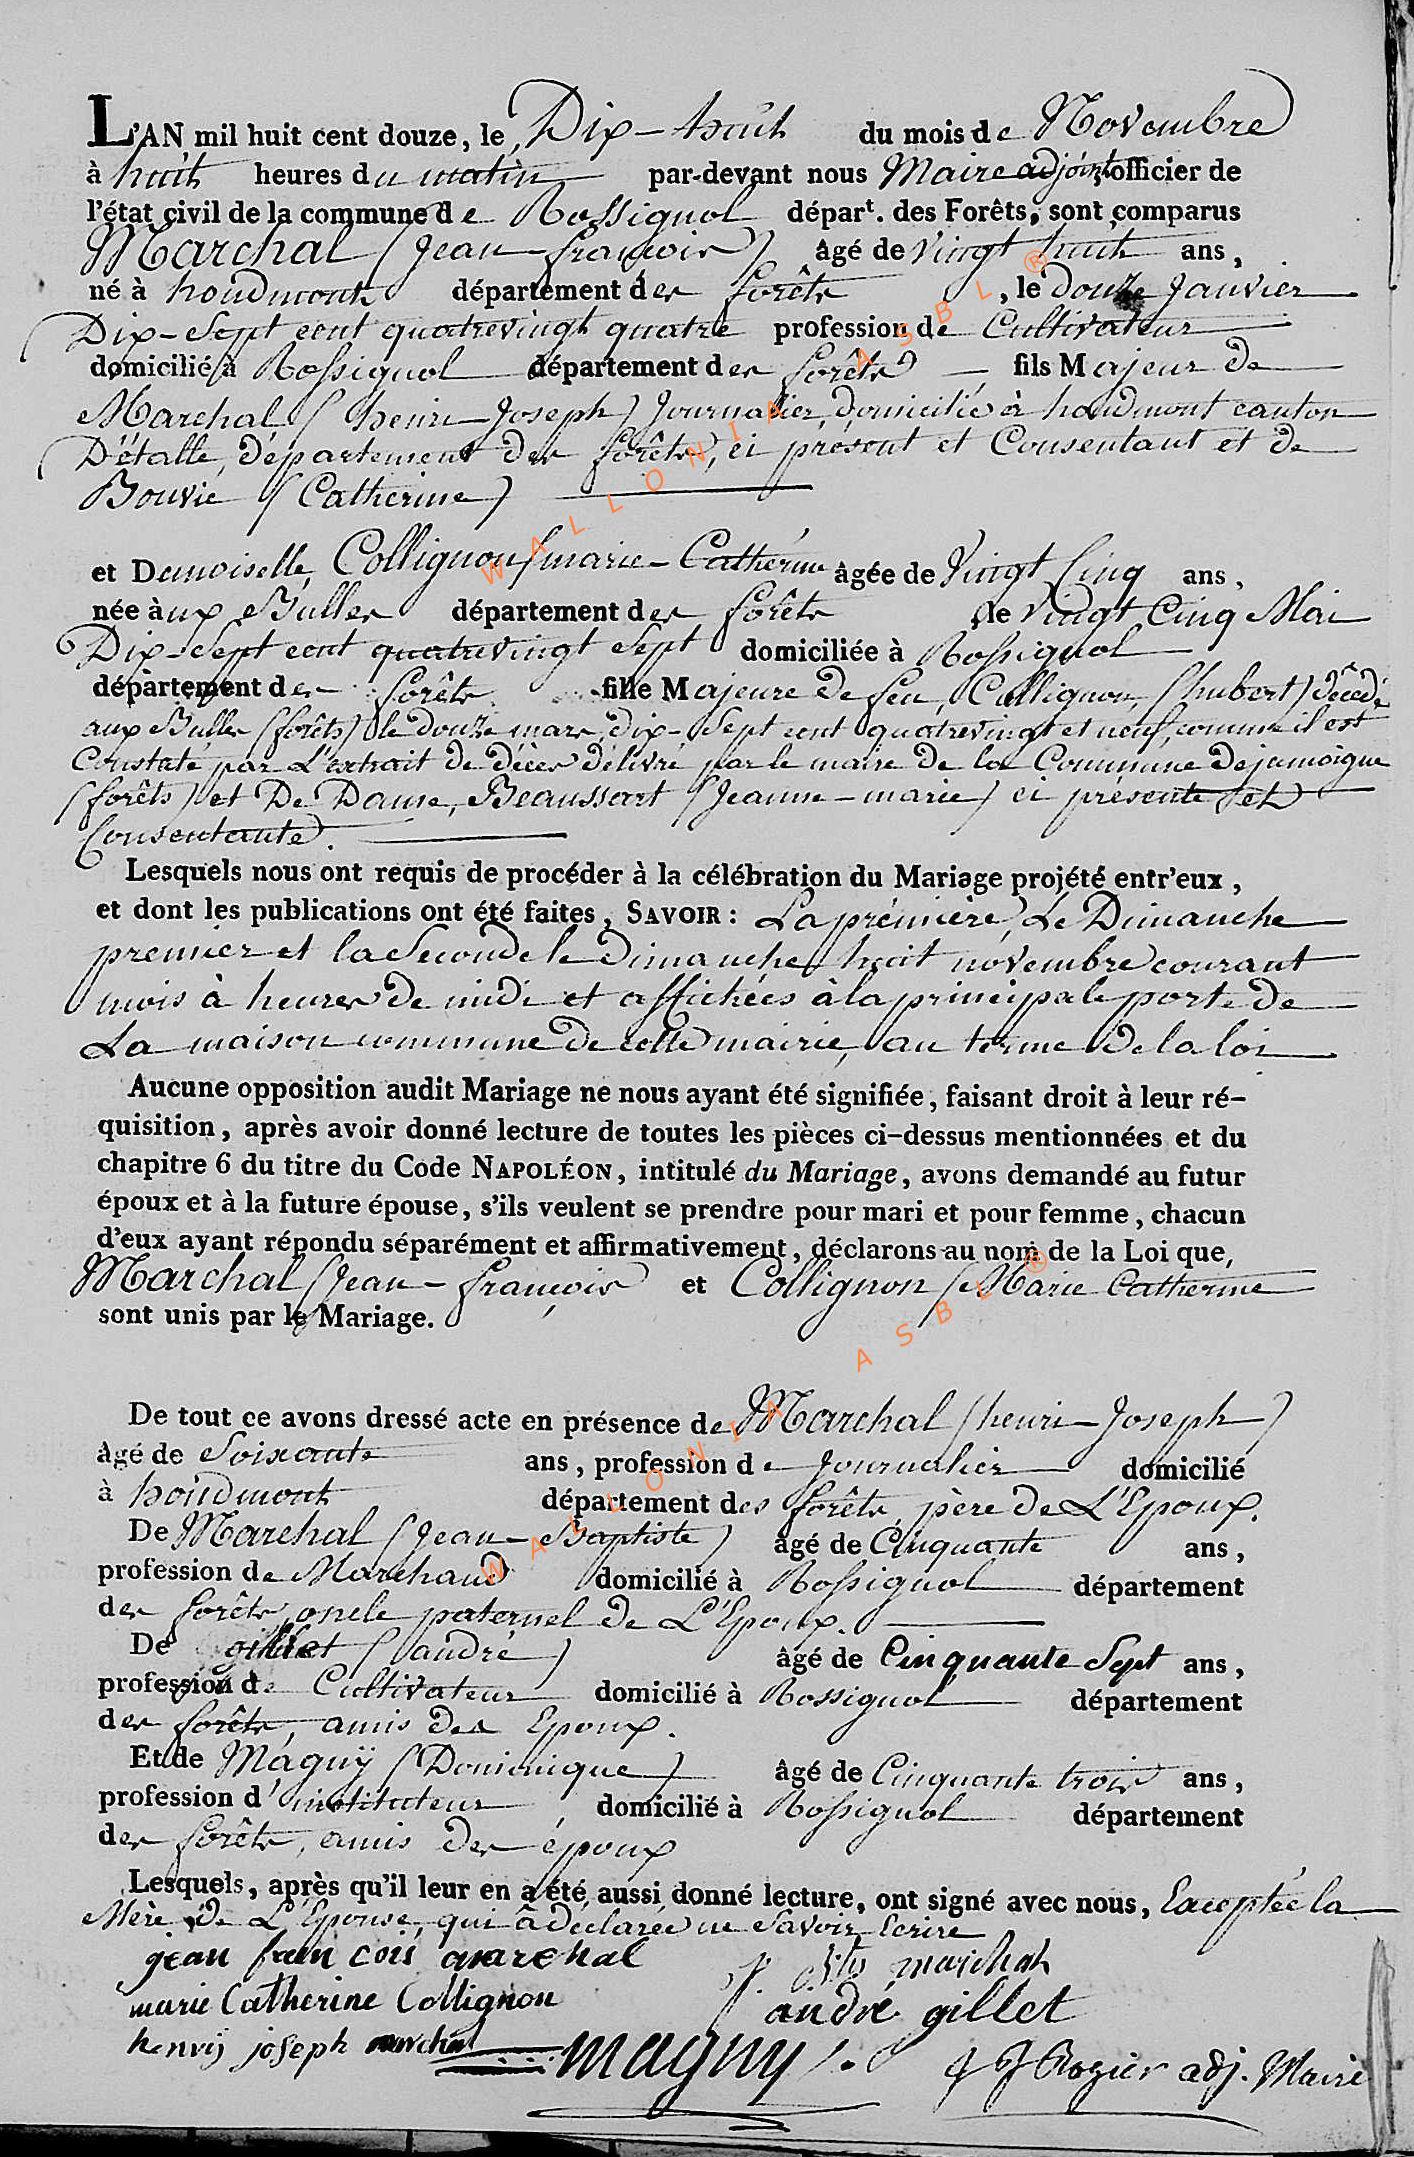 L'AN mil huit cent douze, le Dix-huit du mois de Novembre
à huit heures du matin par-devant nous Maire adjoint, officier de
l'état civil de la commune de Rossignol départ. des Forêts, sont comparus
Marchal (Jean-françois) âgé de Vingt huit ans,
né à houdmont département des forêts, le douze Janvier
Dix-Sept cent quatrevingt quatre profession de Cultivateur
domicilié à Rossignol département des forêts fils Majeur de
Marchal (henri-Joseph) Journalier, domicilié à houdmont canton
D'étalle, département des forêts, ci présent et Consentant et de
Bouvié (Catherine)
et Demoiselle, Collignon (marie-Catherine âgée de Vingt Cinq ans,
née àux Bulles département des forêts le Vingt Cinq Mai
Dix-Sept cent quatrevingt Sept domiciliée à Rossignol
département des forêts fille Majeure de feu, Collignon, (hubert) décédé
aux Bulles (forêts) le douze mars, dix-Sept cent quatrevingt et neuf, comme il est
Constaté par L'extrait de décès délivré par le maire de la Commune de jamoigne
(forêts) et De Dame, Beaussart (Jeanne-marie) ci présente et
Consentante.
Lesquels nous ont requis de procéder à la célébration du Mariage projété entr'eux,
et dont les publications ont été faites, SAVOIR: La première, Le Dimanche
premier et la Seconde le Dimanche huit novembre courant
mois à heures de midi et affichées à la principale porte de
La maison commune de cette mairie, au terme de la loi
Aucune opposition audit Mariage ne nous ayant été signifiée, faisant droit à leur ré-
quisition, après avoir donné lecture de toutes les pièces ci-dessus mentionnées et du
chapitre 6 du titre du Code NAPOLÉON, intitulé du Mariage, avons demandé au futur
époux et à la future épouse, s'ils veulent se prendre pour mari et pour femme, chacun
d'eux ayant répondu séparément et affirmativement, déclarons au nom de la Loi que,
Marchal (Jean-françois et Collignon (Marie Catherine
sont unis par le Mariage.
De tout ce avons dressé acte en présence de Marchal (henri-Joseph)
âgé de Soixante ans, profession de Journalier domicilié
à houdmont département des forêts, père de L'Epoux.
De Marchal (Jean-Baptiste) âgé de Cinquante ans,
profession de Marchand domicilié à Rossignol département
des forêts, oncle paternel de L'Epoux.
De gillet (andré) âgé de Cinquante Sept ans,
profession de Cultivateur domicilié à Rossignol département
des forêts, amis des Epoux.
Et de Maguÿ (Dominique) âgé de Cinquante trois ans,
profession d'instituteur domicilié à Rossignol département
des forêts, amis des époux
Lesquels, après qu'il leur en a été aussi donné lecture, ont signé avec nous, Exceptée la
Mère de L'Epouse, qui à déclarée ne Savoir Ecrire
jean fran cois marchal
marie Catherine Collignon
henrij joseph marchal
marchal
andré gillet
maguy
Rozier adj. Maire
WALLONIA ASBL ®
WALLONIA ASBL ®